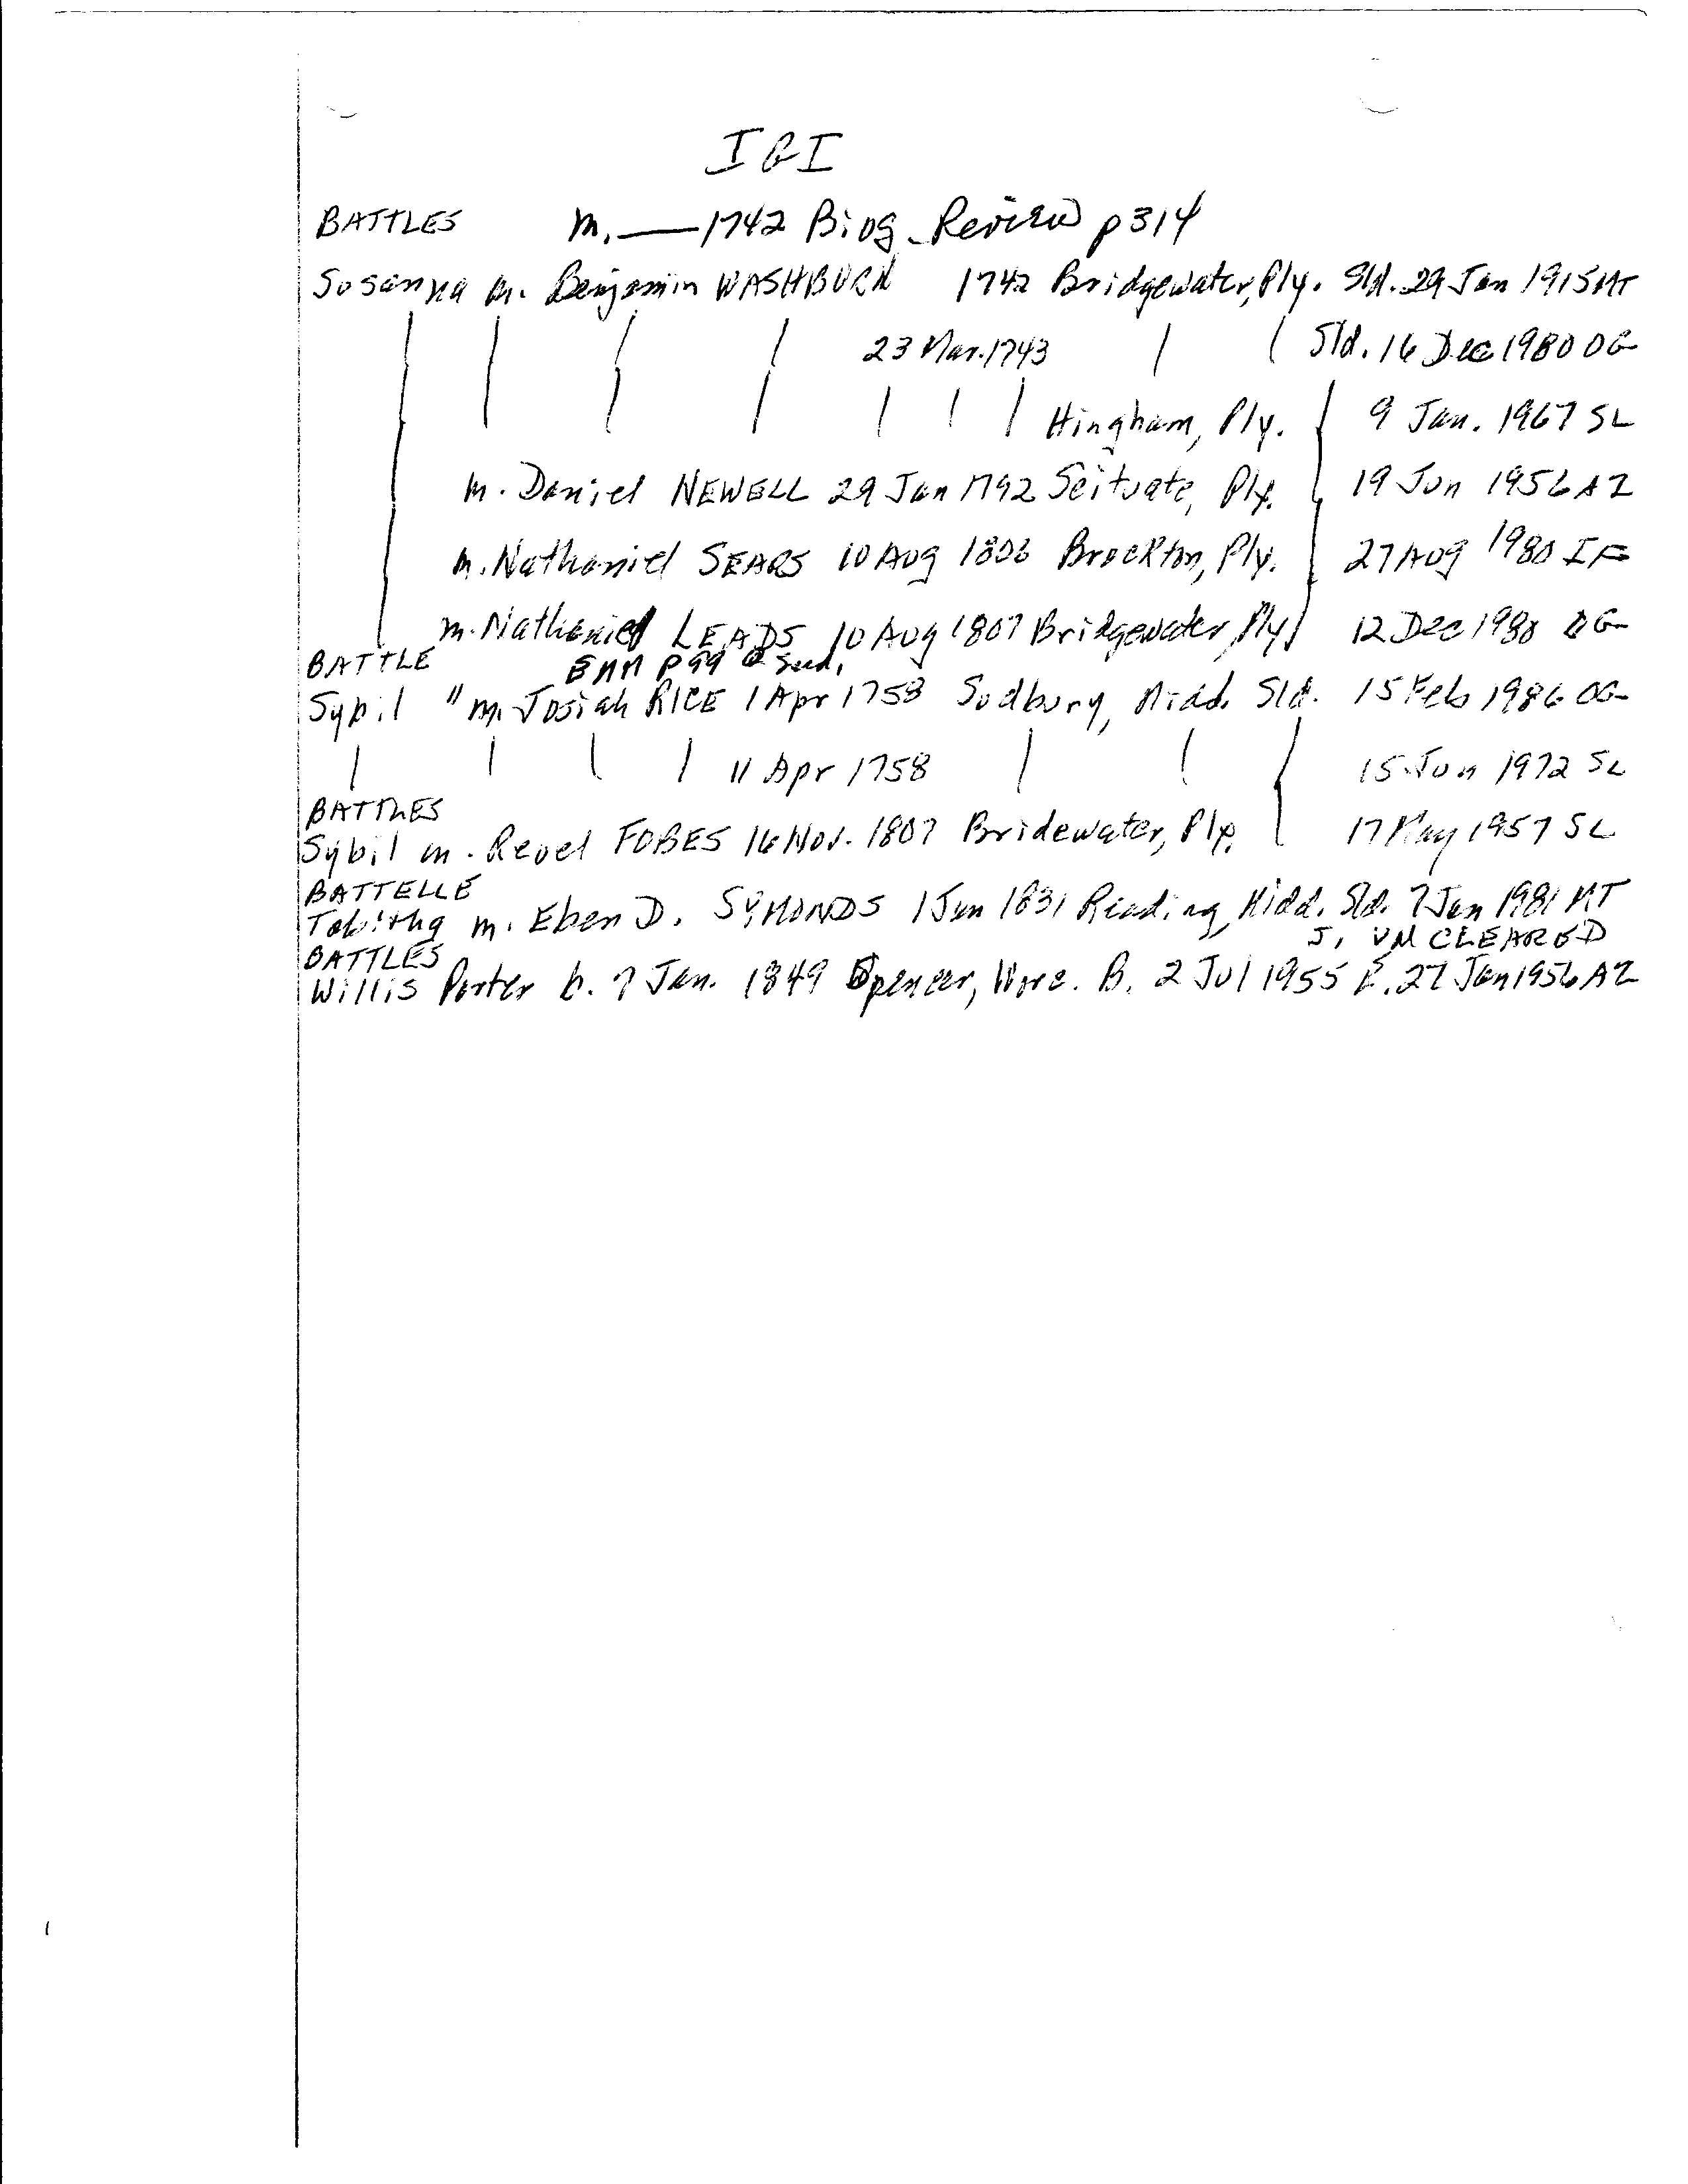 IGI
BATTLES m. — 1742 Biog. Review p314
Susanna m. Benjamin WASHBURN 1742 Bridgewater, Ply. Sld. 29 Jan 1915 MT
| | | | 23 Mar. 1743 | | Sld. 16 Dec 1980 OG
| | | | | | | Hingham, Ply. | 9 Jan. 1967 SL
m. Daniel NEWELL 29 Jan 1792 Scituate, Ply. 19 Jun 1956 AZ
m. Nathaniel SEARS 10 Aug 1806 Brockton, Ply. 27 Aug 1980 IF
m. Nathaniel LEADS 10 Aug 1807 Bridgewater, Ply. 12 Dec 1980 OG
BATTLE
Sybil " m. Josiah RICE 1 Apr 1758 Sudbury, Midd. Sld. 15 Feb 1986 OG
| | | | 11 Apr 1758 | | | 15 Jun 1972 SL
BATTLES
Sybil m. Revel FOBES 16 Nov. 1807 Bridewater, Ply. 17 May 1957 SL
BATTELLE
Tabitha m. Eben D. SYMONDS 1 Jun 1831 Reading, Midd. Sld. 7 Jan 1981 MT
BATTLES CLEARED
Willis Porter b. 7 Jan. 1849 Spencer, Worc. B. 2 Jul 1955 E. 27 Jan 1956 AZ